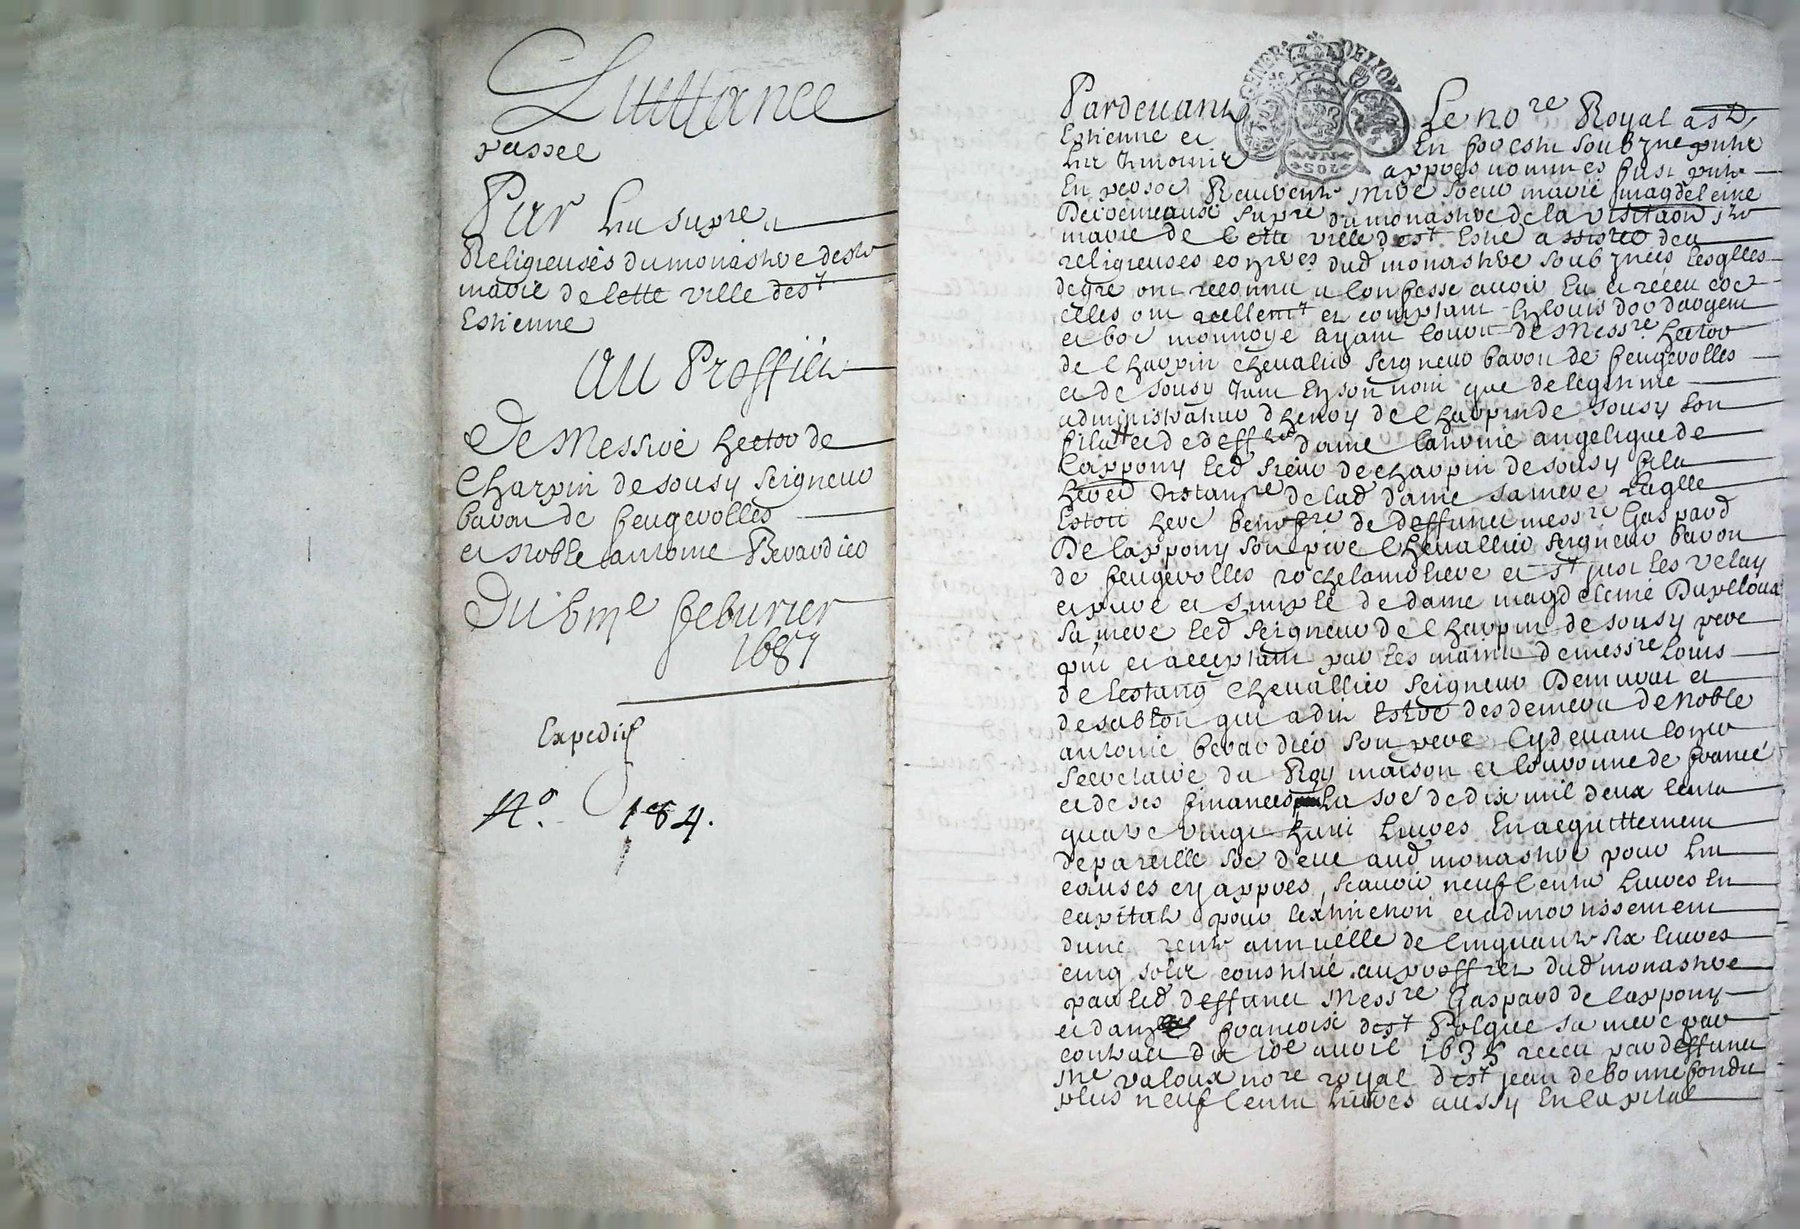 Quittance
passee
Par les supre et
Religieuses du monastere de ste
marie de cette ville de st
Estienne
Au Proffict
De Messire hector de
Charpin de sousy seigneur
baron de feugerolles
et noble antoine Berardier
Du 6me feburier
1687
Expedié
No. 184.
GENER. DE LYON
UN SOL
Pardevant Le nore Royal a st
Estienne et En forestz soubzne
les tesmoins appres nommes fust pnte
En persoe Reverente mere soeur marie magdeleine
supre du monastere de la visitaon ste
marie de cette ville de st Estne assistee des
religieuses du monastere soubznees lesqlles
de gre ont reconnu et confesse avoir eu et receu coe
elles ont reellemt et comptant en louis dor dargent
et boe monnoye ayant cours de Messre hector
de Charpin chevalier seigneur baron de feugerolles
et de sousy tant en son nom que de legitime
administrateur dhenry de Charpin de sousy son
fils et de deffte dame Catherine angelique de
Cappony led sieur de charpin de sousy fils
herer de lad dame sa mere laqlle
Estoit here de deffunct messre Gaspard
De Cappony son pere Chevallier seigneur baron
de feugerolles rochelamoliere et st just les velay
et pure et simple de dame magdeleine Dupelloux
sa mere led seigneur de Charpin de sousy pere
pnt et acceptant par les mains de messre Louis
de lestang Chevallier seigneur De murat et
de sablon qui a dit estre des deniers de noble
antoine berardier son pere Cydevant coner
Secretaire du Roy maison et Couronne de france
et de ses finances la soe de dix mil deux cents
quatre vingt huit livres En acquittement
de pareille soe deue aud monastere pour les
causes cy appres, scavoir neuf cents livres En
capital pour lextinction et admortissement
dune rente annuelle de Cinquante six livres
cinq solz constitue au proffict dud monastere
par led deffunct Messre Gaspard de Cappony
et dame francoise de st Polgue sa mere par
contract du 10e avril 1635 receu par deffunct
me valoux nore royal de st jean de bonnefondz
plus neuf cents livres aussy En capital